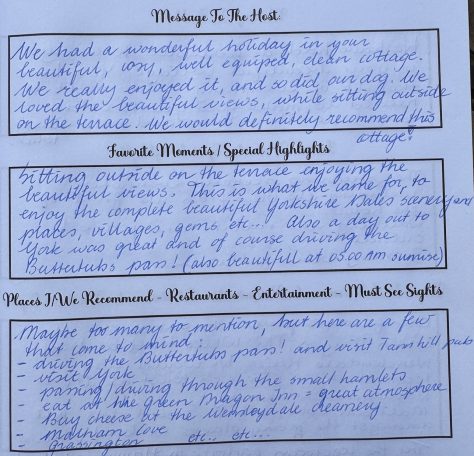 Message To The Host:
We had a wonderful holiday in your
beautiful, cosy, well equiped, clean cottage.
We really enjoyed it, and so did our dog. We
loved the beautiful views, while sitting outside
on the terrace. We would definitely recommend this
cottage!
Favorite Moments / Special Highlights
Sitting outside on the terrace enjoying the
beautiful views. This is what we came for, to
enjoy the complete beautiful Yorkshire Dales scenery and
places, villages, gems etc... Also a day out to
York was great and of course driving the
Buttertubs pass! (also beautifull at 05.00 AM sunrise)
Places I/We Recommend - Restaurants - Entertainment - Must See Sights
Maybe too many to mention, but here are a few
that come to mind:
- driving the Buttertubs pass! and visit Tann hill pub
- visit York
- passing/driving through the small hamlets
- eat at the Green Dragon Inn = great atmosphere
- Buy cheese at the Wensleydale creamery
- Malham Cove
- Grassington etc... etc...